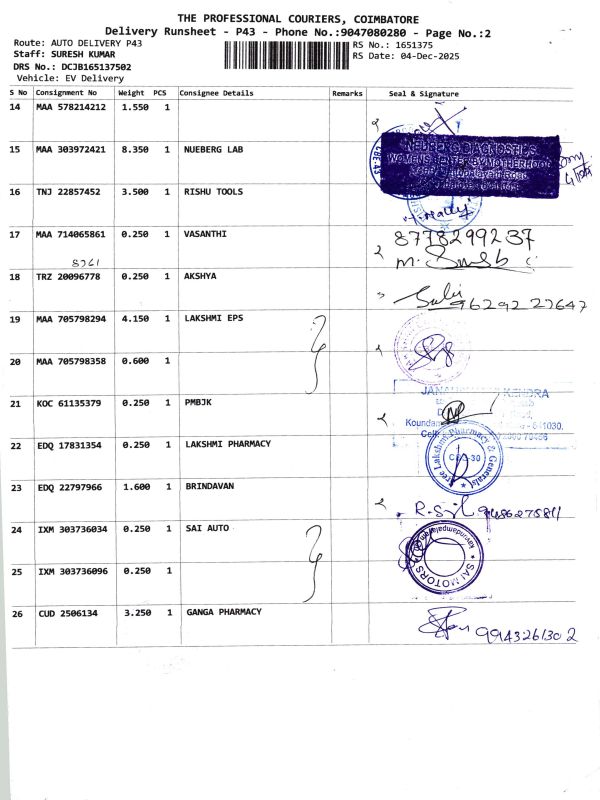 THE PROFESSIONAL COURIERS, COIMBATORE
Delivery Runsheet - P43 - Phone No.:9047080280 - Page No.:2
Route: AUTO DELIVERY P43
Staff: SURESH KUMAR
DRS No.: DCJB165137502
Vehicle: EV Delivery
RS No.: 1651375
RS Date: 04-Dec-2025
S No Consignment No Weight PCS Consignee Details Remarks Seal & Signature
14 MAA 578214212 1.550 1
15 MAA 303972421 8.350 1 NUEBERG LAB
NEUBERG DIAGNOSTICS
WOMENS CENTER BY MOTHERHOOD
16 TNJ 22857452 3.500 1 RISHU TOOLS
17 MAA 714065861 0.250 1 VASANTHI 8778299237
8761
18 TRZ 20096778 0.250 1 AKSHYA
9629222647
19 MAA 705798294 4.150 1 LAKSHMI EPS
20 MAA 705798358 0.600 1
KENDRA
21 KOC 61135379 0.250 1 PMBJK
641030.
22 EDQ 17831354 0.250 1 LAKSHMI PHARMACY
Sree Lakshmi Pharmacy & Generals
CBE-30
23 EDQ 22797966 1.600 1 BRINDAVAN
24 IXM 303736034 0.250 1 SAI AUTO
SAI MOTORS
25 IXM 303736096 0.250 1
26 CUD 2506134 3.250 1 GANGA PHARMACY
9943261302